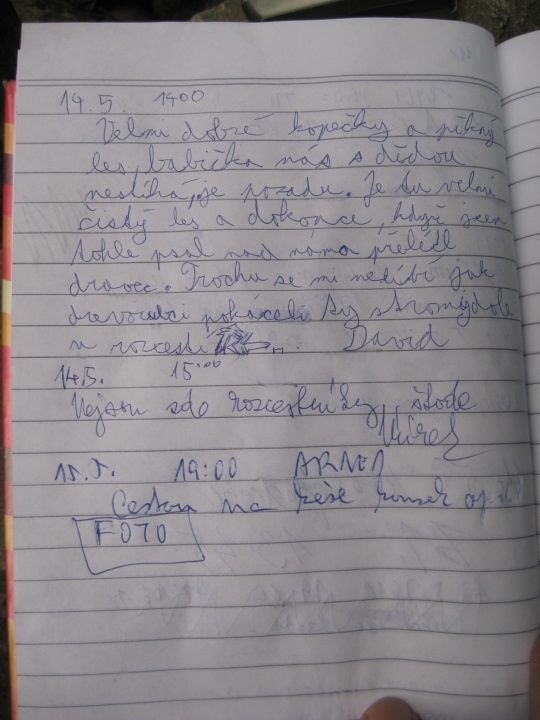 14.5. 1400
Velmi dobré kopečky a pěkný
les, babička nás s dědou
nestíhá, je pozadu. Je tu velmi
čistý les a dokonce, když jsem
tohle psal nad náma přelítl
dravec. Trochu se mi nelíbí jak
dřevorubci pokáceli ty stromy dole
u rozcestí David
14.5. 15:00
Nejsou zde rozcestníky, škoda
15.5. 19:00
Cestou na
FOTO